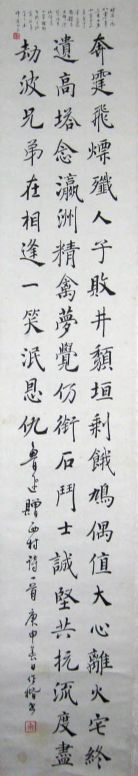 奔霆飛熛殲人子敗井頹垣剩餓鳩偶值大心離火宅終
遺高塔念瀛洲精禽夢覺仍銜石鬥士誠堅共抗流度盡
劫波兄弟在相逢一笑泯恩仇魯迅贈西村詩一首庚申春日作楷書